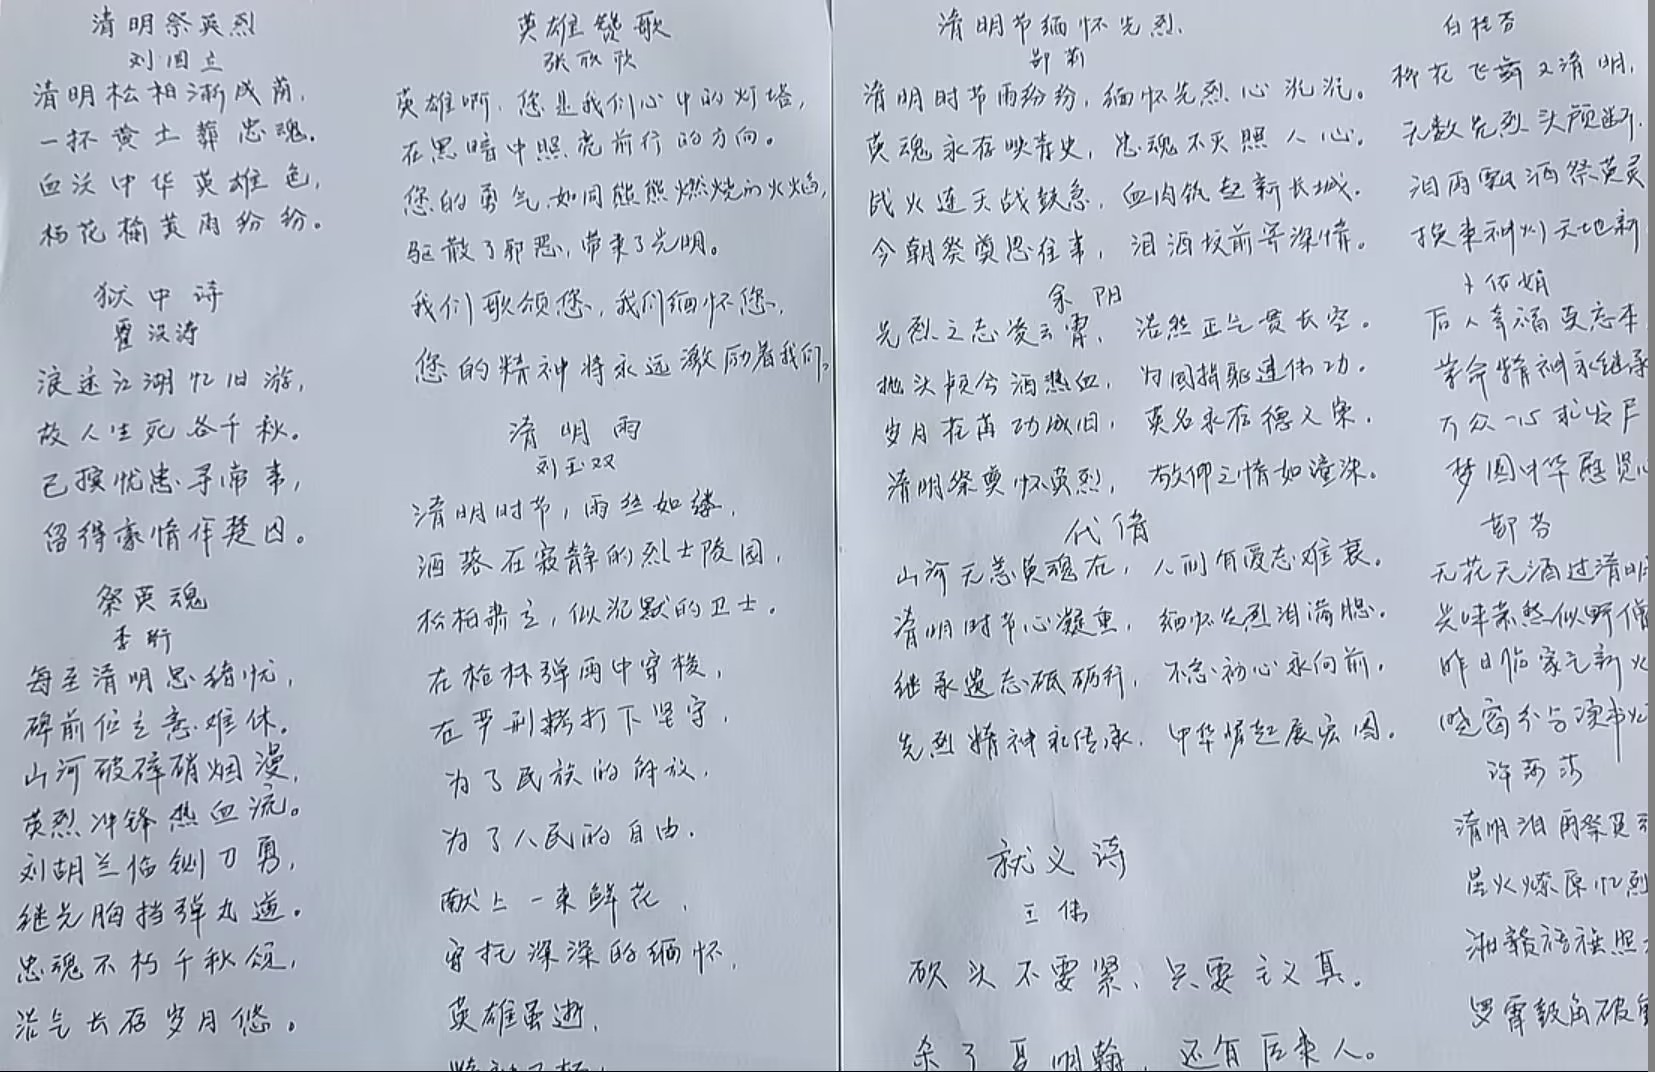 清明祭英烈
刘国立
清明松柏渐成荫，
一抔黄土葬忠魂。
血沃中华英雄色，
杨花榆荚雨纷纷。
狱中诗
霍汉涛
浪迹江湖忆旧游，
故人生死各千秋。
已摈忧患寻常事，
留得豪情作楚囚。
祭英魂
李珩
每至清明思绪忧，
碑前伫立意难休。
山河破碎硝烟漫，
英烈冲锋热血流。
刘胡兰临铡刀勇，
继光胸挡弹丸遒。
忠魂不朽千秋颂，
浩气长存岁月悠。
英雄赞歌
张欣欣
英雄啊，您是我们心中的灯塔，
在黑暗中照亮前行的方向。
您的勇气，如同熊熊燃烧的火焰，
驱散了邪恶，带来了光明。
我们歌颂您，我们缅怀您，
您的精神将永远激励着我们。
清明雨
刘玉双
清明时节，雨丝如缕，
洒落在寂静的烈士陵园，
松柏肃立，似沉默的卫士。
在枪林弹雨中穿梭，
在严刑拷打下坚守，
为了民族的解放，
为了人民的自由，
献上一束鲜花，
寄托深深的缅怀，
英雄虽逝，
清明节缅怀先烈
郜莉
清明时节雨纷纷，缅怀先烈心沉沉。
英魂永存映青史，忠魂不灭照人心。
战火连天战鼓急，血肉筑起新长城。
今朝祭奠思往事，泪洒坟前寄深情。
余阳
先烈之志凌云霄，浩然正气贯长空。
抛头颅兮洒热血，为国捐躯建伟功。
岁月荏苒功成旧，英名永存德义宋。
清明祭奠怀英烈，敬仰之情如潼深。
代倩
山河无恙英魂在，人间有爱志难衰。
清明时节心凝重，缅怀先烈泪满腮。
继承遗志砥砺行，不忘初心永向前。
先烈精神永传承，中华崛起展宏图。
就义诗
王伟
砍头不要紧，只要主义真。
杀了夏明翰，还有后来人。
白桂芬
柳花飞舞又清明，
无数先烈头颅断，
泪雨飘洒祭英灵
换来神州天地新
卜依娟
后人幸福莫忘本
革命精神永继承
万众一心求发
梦圆中华慰
郭芬
无花无酒过清明
兴味萧然似野僧
昨日临家乞新火
晓窗分与读书
许莎莎
清明泪雨祭英
星火燎原忆烈
湘赣
罗霄鼓角破